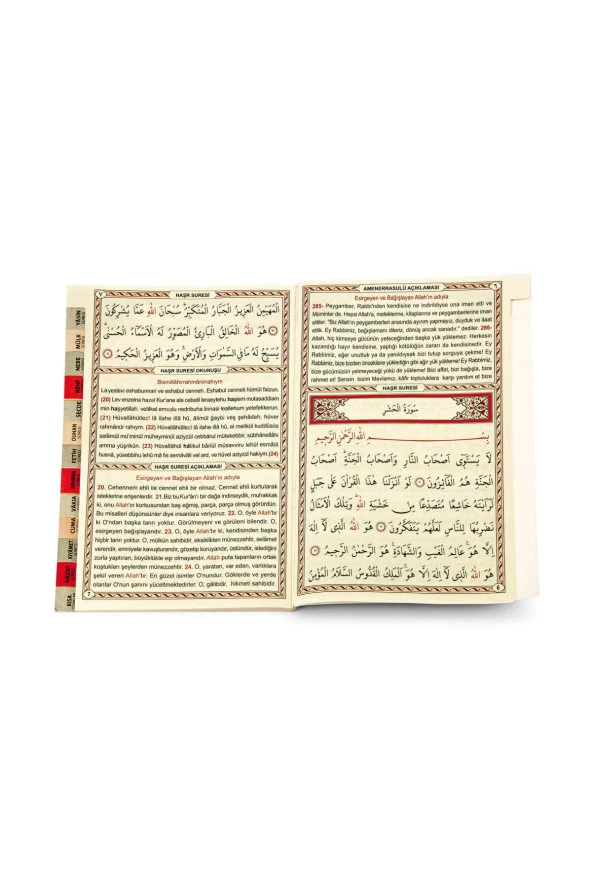 AMENERRASULÜ AÇIKLAMASI
٦
Esirgeyen ve Bağışlayan Allah'ın adıyla
285- Peygamber, Rabbi'nden kendisine ne indirildiyse ona iman etti ve
Müminler de. Hepsi Allah'a, meleklerine, kitaplarına ve peygamberlerine iman
ettiler. "Biz Allah'ın peygamberleri arasında ayırım yapmayız, duyduk ve itaat
ettik. Ey Rabbimiz, bağışlamanı dileriz, dönüş ancak sanadır." dediler. 286-
Allah, hiç kimseye gücünün yeteceğinden başka yük yüklemez. Herkesin
kazandığı hayır kendisine, yaptığı kötülüğün zararı da kendisinedir. Ey
Rabbimiz, eğer unuttuk ya da yanıldıysak bizi tutup sorguya çekme! Ey
Rabbimiz, bize bizden öncekilere yüklediğin gibi ağır yük yükleme! Ey Rabbimiz,
bize gücümüzün yetmeyeceği yükü de yükleme! Bizi affet, bizi bağışla, bize
rahmet et! Sensin bizim Mevlamız, kâfir topluluklara karşı yardım et bize
HAŞR SURESİ
سُورَةُ الْحَشْرِ
بِسْمِ اللّٰهِ الرَّحْمٰنِ الرَّحِيمِ
لَا يَسْتَوِى اَصْحَابُ النَّارِ وَاَصْحَابُ الْجَنَّةِ اَصْحَابُ
الْجَنَّةِ هُمُ الْفَائِزُونَ لَوْ اَنْزَلْنَا هٰذَا الْقُرْاٰنَ عَلٰى جَبَلٍ
لَرَاَيْتَهُ خَاشِعًا مُتَصَدِّعًا مِنْ خَشْيَةِ اللّٰهِ وَتِلْكَ الْاَمْثَالُ
نَضْرِبُهَا لِلنَّاسِ لَعَلَّهُمْ يَتَفَكَّرُونَ هُوَ اللّٰهُ الَّذِى لَا اِلٰهَ
اِلَّا هُوَ عَالِمُ الْغَيْبِ وَالشَّهَادَةِ هُوَ الرَّحْمٰنُ الرَّحِيمُ
هُوَ اللّٰهُ الَّذِى لَا اِلٰهَ اِلَّا هُوَ اَلْمَلِكُ الْقُدُّوسُ السَّلَامُ الْمُؤْمِنُ
6
٧
HAŞR SURESİ
الْمُهَيْمِنُ الْعَزِيزُ الْجَبَّارُ الْمُتَكَبِّرُ سُبْحَانَ اللّٰهِ عَمَّا يُشْرِكُونَ
هُوَ اللّٰهُ الْخَالِقُ الْبَارِئُ الْمُصَوِّرُ لَهُ الْاَسْمَاءُ الْحُسْنٰى
يُسَبِّحُ لَهُ مَا فِى السَّمٰوَاتِ وَالْاَرْضِ وَهُوَ الْعَزِيزُ الْحَكِيمُ
HAŞR SURESİ OKUNUŞU
Bismillâhirrahmânirrahıym
La yestevi eshabunnari ve eshabul cenneh. Eshabul cenneti hümül faizun.
(20) Lev enzelna hazel Kur'ane als cabelil leraeytehu haşiım mutasaddiam
min haşyetillah. vetilkel emsalu nedribuha linnasi leallehum yetefekkerun.
(21) Hüvallahüllezî lâ ilahe illâ hû, âlimül ğaybi veş şehâdeh, hüver
rahmânür rahıym. (22) Hüvallahüllezî lâ ilahe illâ hû, el melikül kuddûsüs
selâmül mü'minül müheyminül aziyzül cebbârul mütekebbir, sübhânellâhi
amma yüşrikûn. (23) Hüvallâhül hâlikul bâriül müsavviru lehül esmâül
husnâ, yüsebbihu lehû mâ fis semâvâti vel ard, ve hüvel aziyzül hakiym.(24)
HAŞR SURESİ AÇIKLAMASI
Esirgeyen ve Bağışlayan Allah'ın adıyla
20. Cehennem ehli ile cennet ehli bir olmaz. Cennet ehli kurtularak
isteklerine erişenlerdir. 21.Biz bu Kur'ân'ı bir dağa indirseydik, muhakkak
ki, onu Allah'ın korkusundan baş eğmiş, parça, parça olmuş görürdün.
Bu misalleri düşünsünler diye insanlara veriyoruz. 22. O, öyle Allah'tır
ki O'ndan başka tanrı yoktur. Görülmeyeni ve görüleni bilendir. O,
esirgeyen bağışlayandır. 23. O, öyle Allah'tır ki, kendisinden başka
hiçbir tanrı yoktur. O, mülkün sahibidir, eksiklikten münezzehtir, selâmet
verendir, emniyete kavuşturandır, gözetip koruyandır, üstündür, istediğini
zorla yaptıran, büyüklükte eşi olmayandır. Allah puta tapanların ortak
koştukları şeylerden münezzehtir. 24. O, yaratan, var eden, varlıklara
şekil veren Allah'tır. En güzel isimler O'nundur. Göklerde ve yerde
olanlar O'nun şanını yüceltmektedirler. O, gâlibdir, hikmet sahibidir.
7
YÂSİN
MÜLK
NEBE
KEHF
SECDE
DUHAN
FETİH
RAHMAN
VÂKIA
CUMA
KIYÂMET
KISA